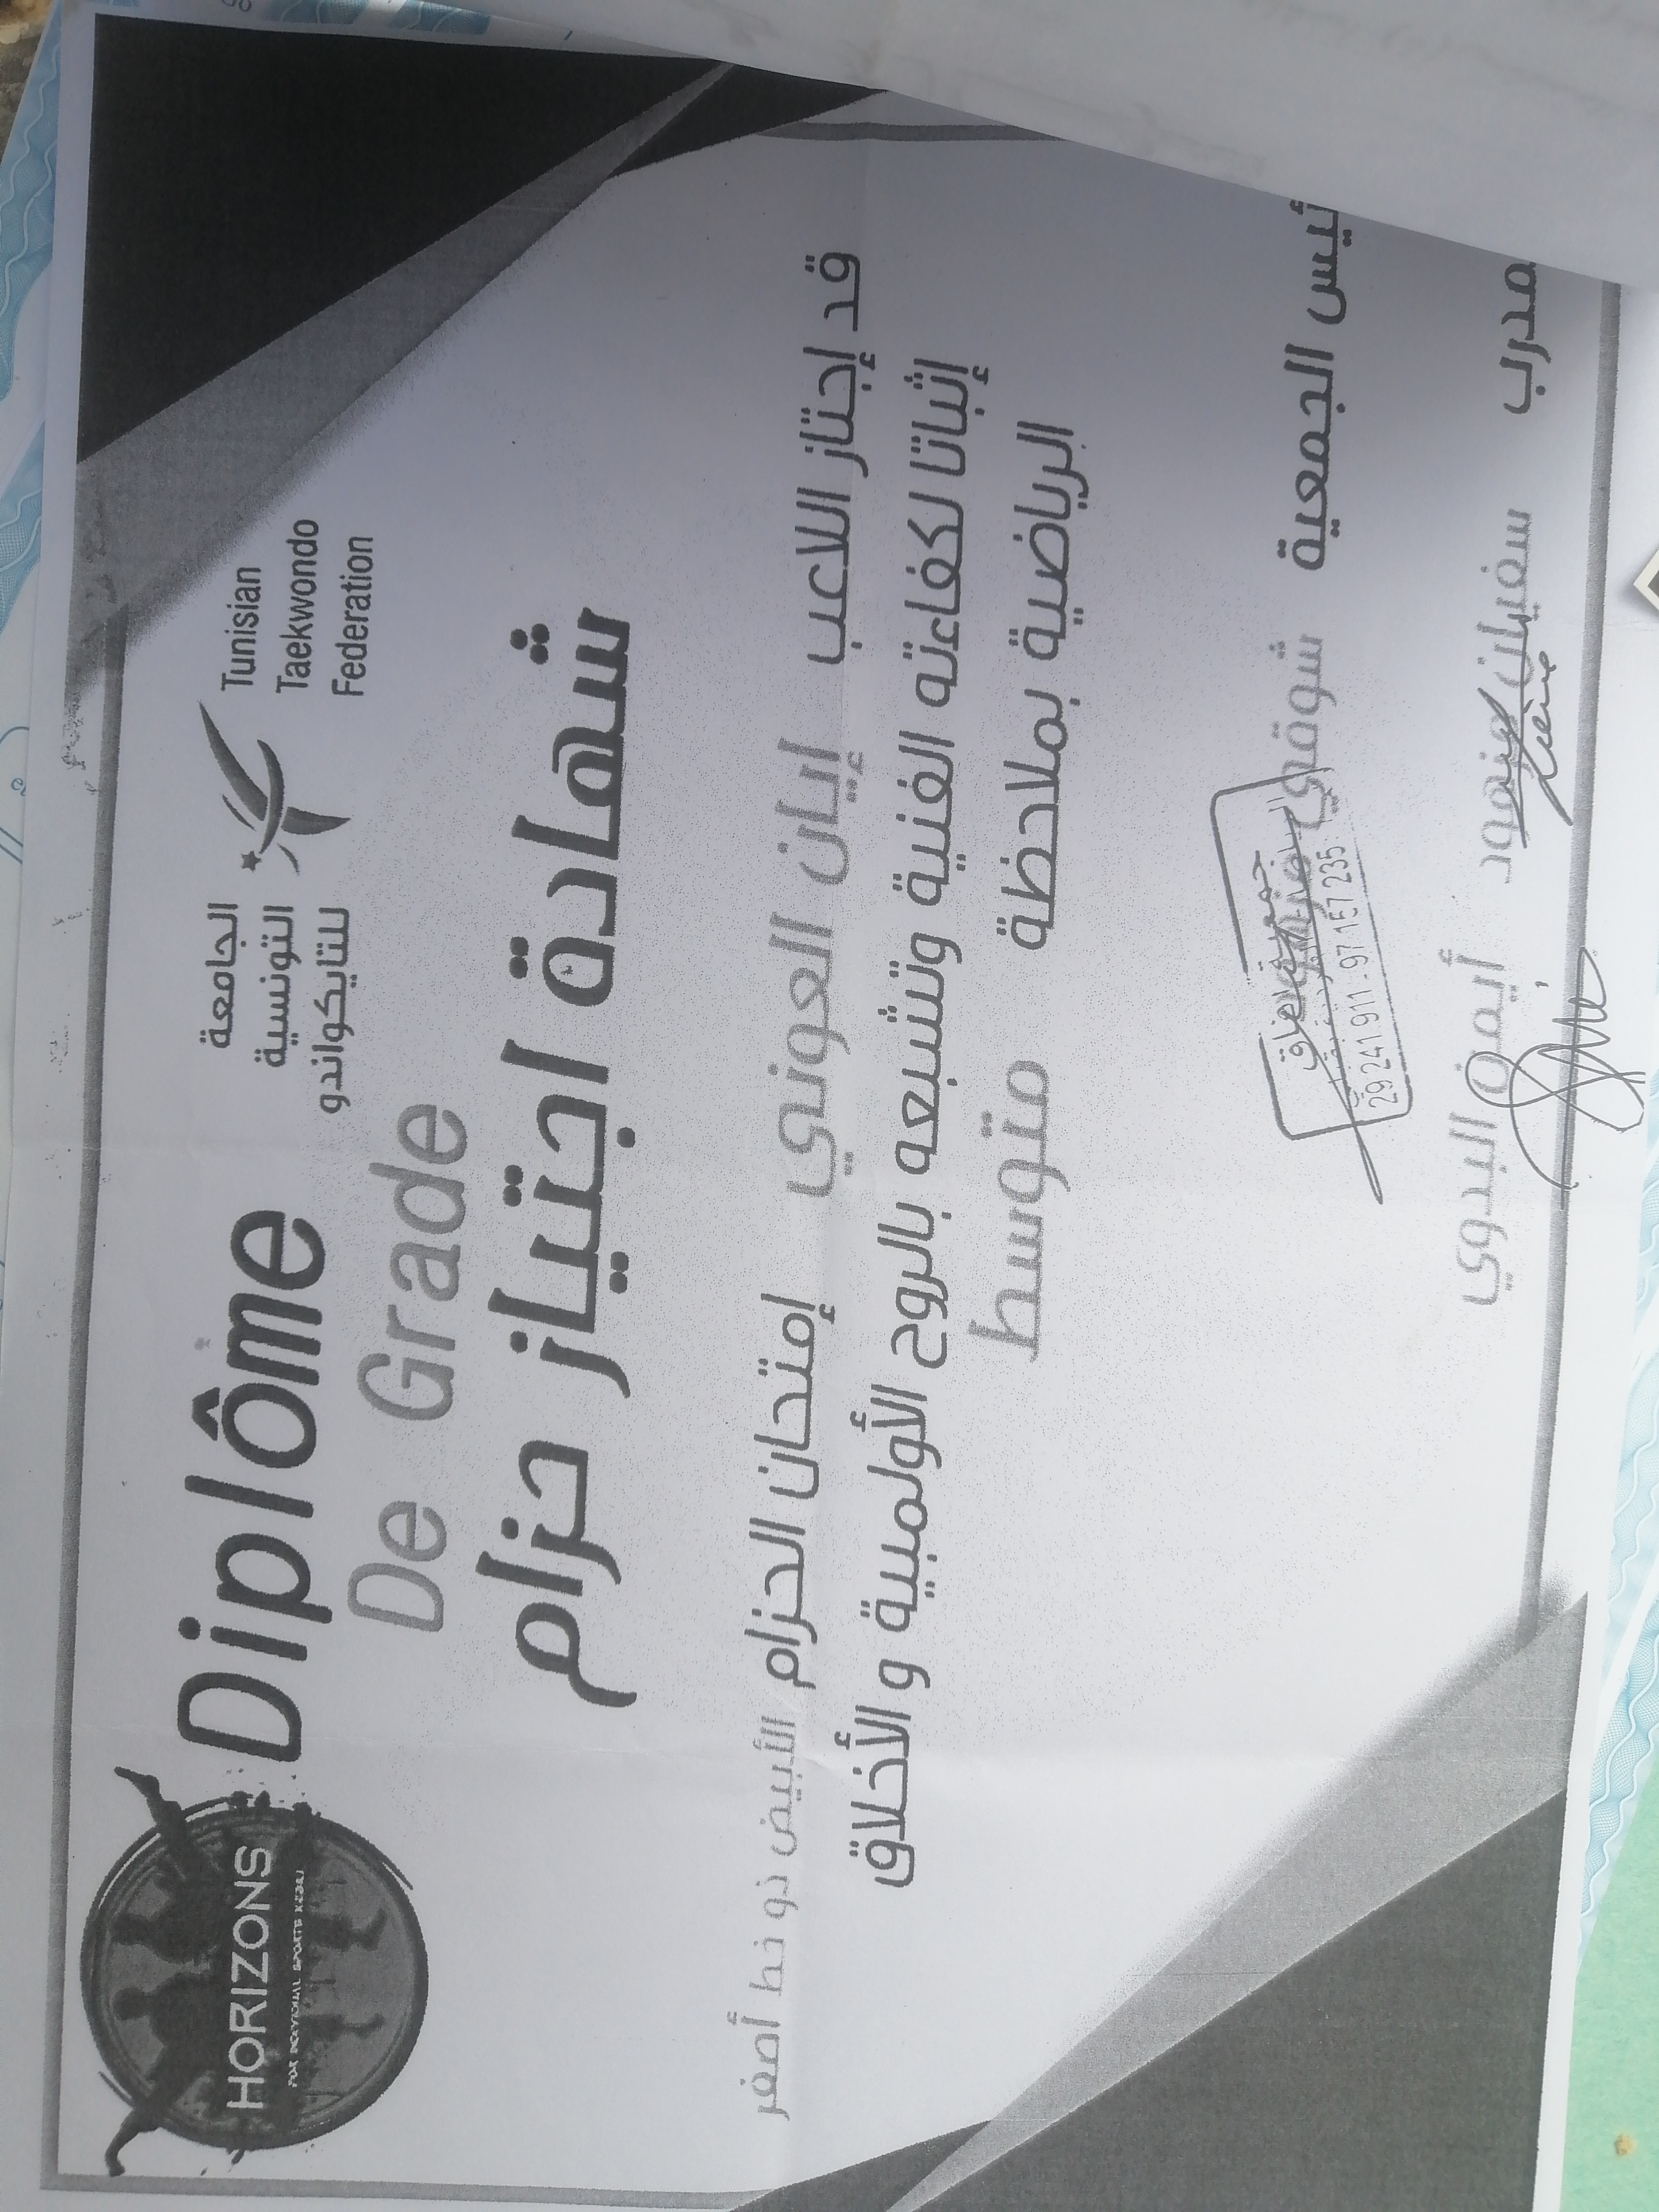 HORIZONS
FOR INDIVIDUAL SPORTS KEBILI
Diplôme
De Grade
الجامعة
التونسية
للتايكواندو
Tunisian
Taekwondo
Federation
شهادة اجتياز حزام
قد إجتاز اللاعب إيان العوني إمتحان الحزام الأبيض ذو خط أصفر
إثباتا لكفاءته الفنية وتشبعه بالروح الأولمبية و الأخلاق
الرياضية بملاحظة متوسط
ئيس الجمعية شوقي
29 241 911 - 97 157 235
مدرب سفيان أيمن البدوي